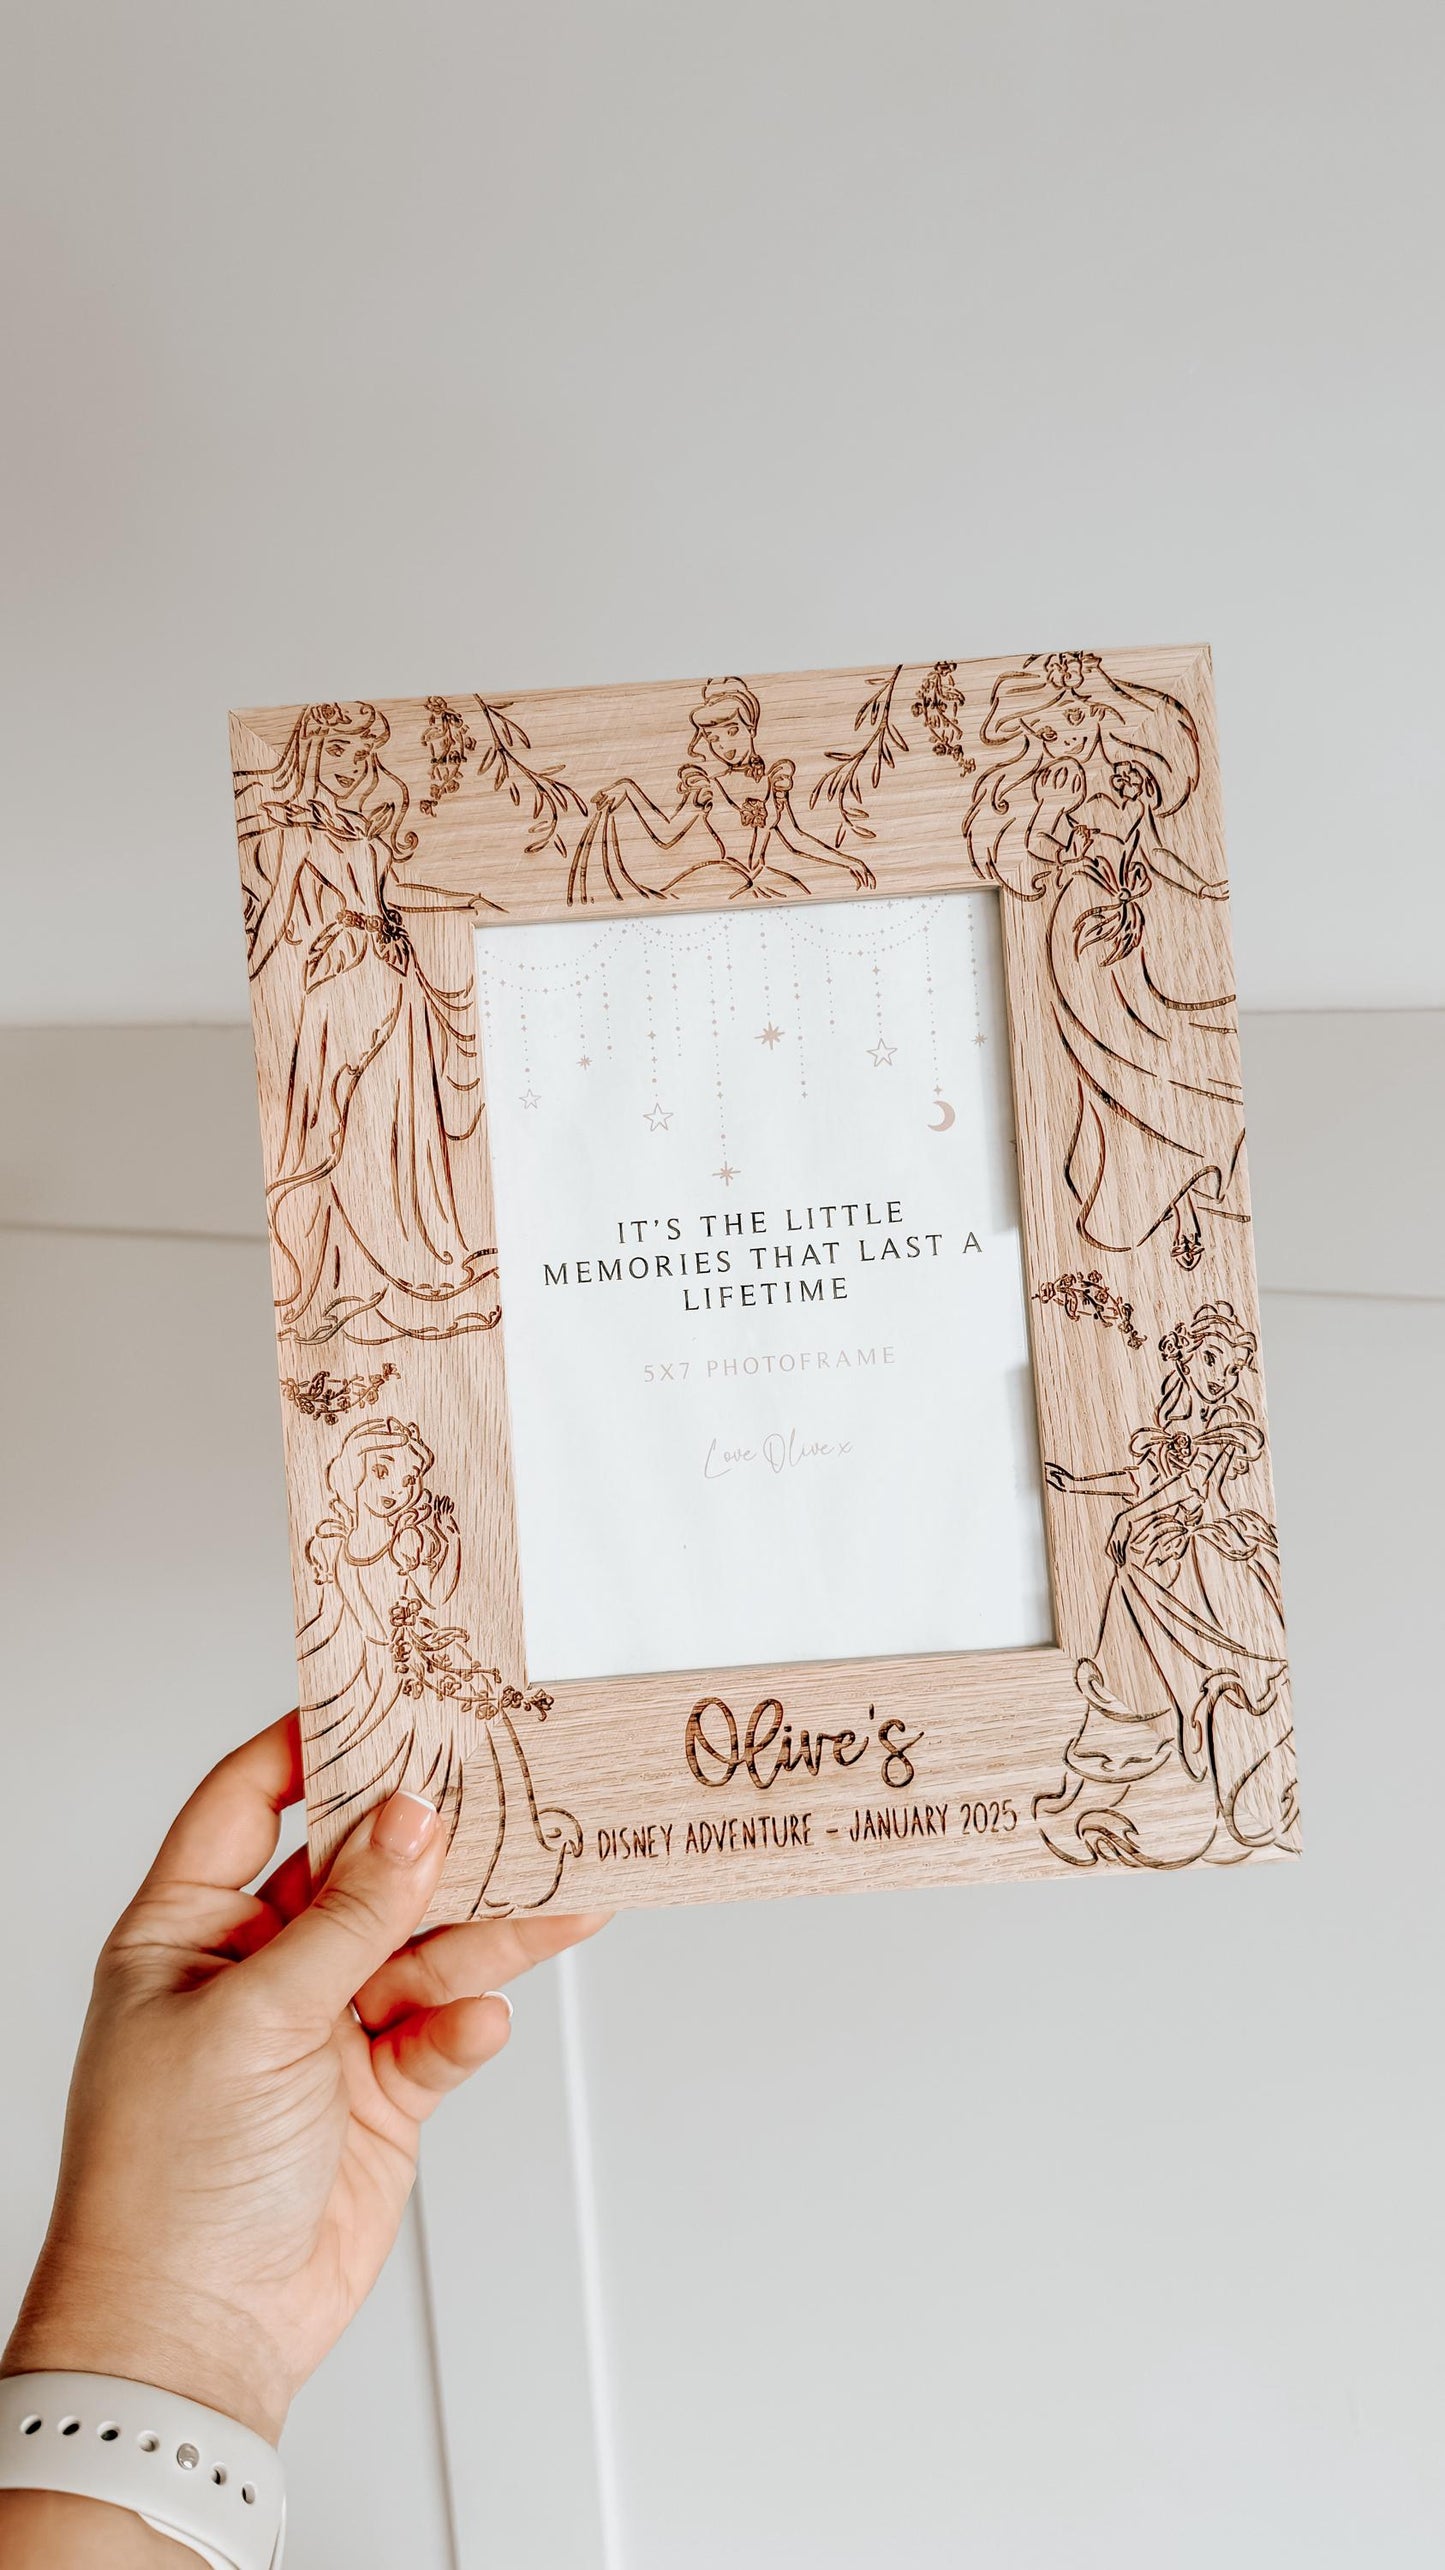 IT'S THE LITTLE
MEMORIES THAT LAST A
LIFETIME
5X7 PHOTOFRAME
Love Olive x
Olive's
DISNEY ADVENTURE - JANUARY 2025